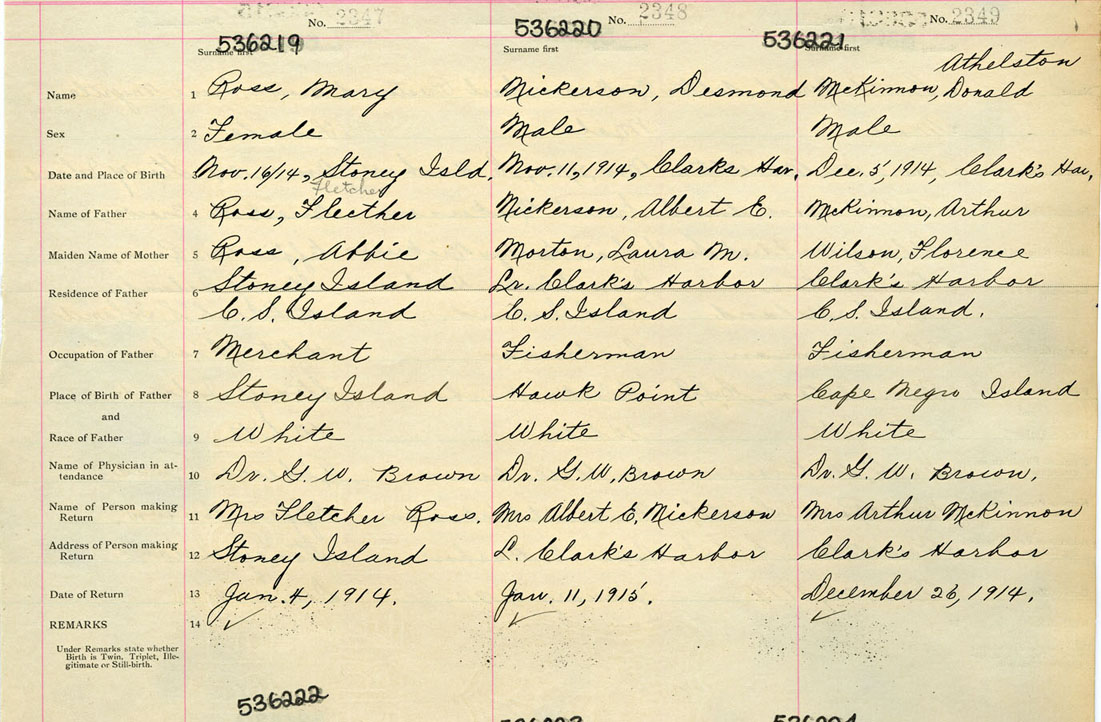 No. 2347 No. 2348 No. 2349
536219 536220 536221
Surname first Surname first Surname first
Athelston
Name 1 Ross, Mary Nickerson, Desmond McKinnon, Donald
Sex 2 Female Male Male
Date and Place of Birth 3 Nov. 16/14, Stoney Isld. Nov. 11, 1914, Clarks Har. Dec. 5, 1914, Clark's Har.
Fletcher
Name of Father 4 Ross, Flecther Nickerson, Albert E. McKinnon, Arthur
Maiden Name of Mother 5 Ross, Abbie Morton, Laura M. Wilson, Florence
Stoney Island Lr. Clark's Harbor Clark's Harbor
Residence of Father 6
C. S. Island C. S. Island C. S. Island.
Occupation of Father 7 Merchant Fisherman Fisherman
Place of Birth of Father 8 Stoney Island Hawk Point Cape Negro Island
and
Race of Father 9 White White White
Name of Physician in at-
tendance 10 Dr. G. W. Brown Dr. G. W. Brown Dr. G. W. Brown.
Name of Person making
Return 11 Mrs Fletcher Ross. Mrs Albert E. Nickerson Mrs Arthur McKinnon
Address of Person making
Return 12 Stoney Island L. Clark's Harbor Clark's Harbor
Date of Return 13 Jan. 4, 1914. Jan. 11, 1915. December 26, 1914.
REMARKS 14
Under Remarks state whether
Birth is Twin, Triplet, Ille-
gitimate or Still-birth.
536222